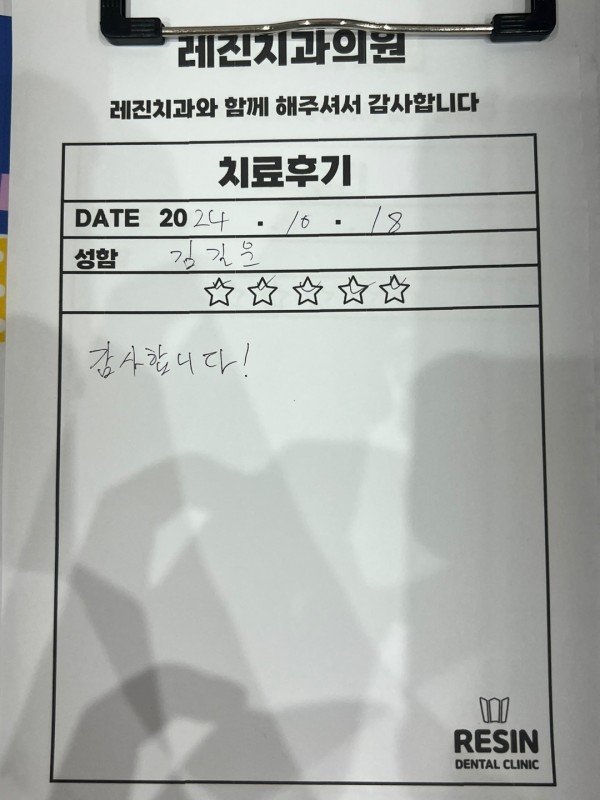 레진치과의원
레진치과와 함께 해주셔서 감사합니다
치료후기
DATE 2024 . 10 . 18
성함 김길운
감사합니다!
RESIN
DENTAL CLINIC